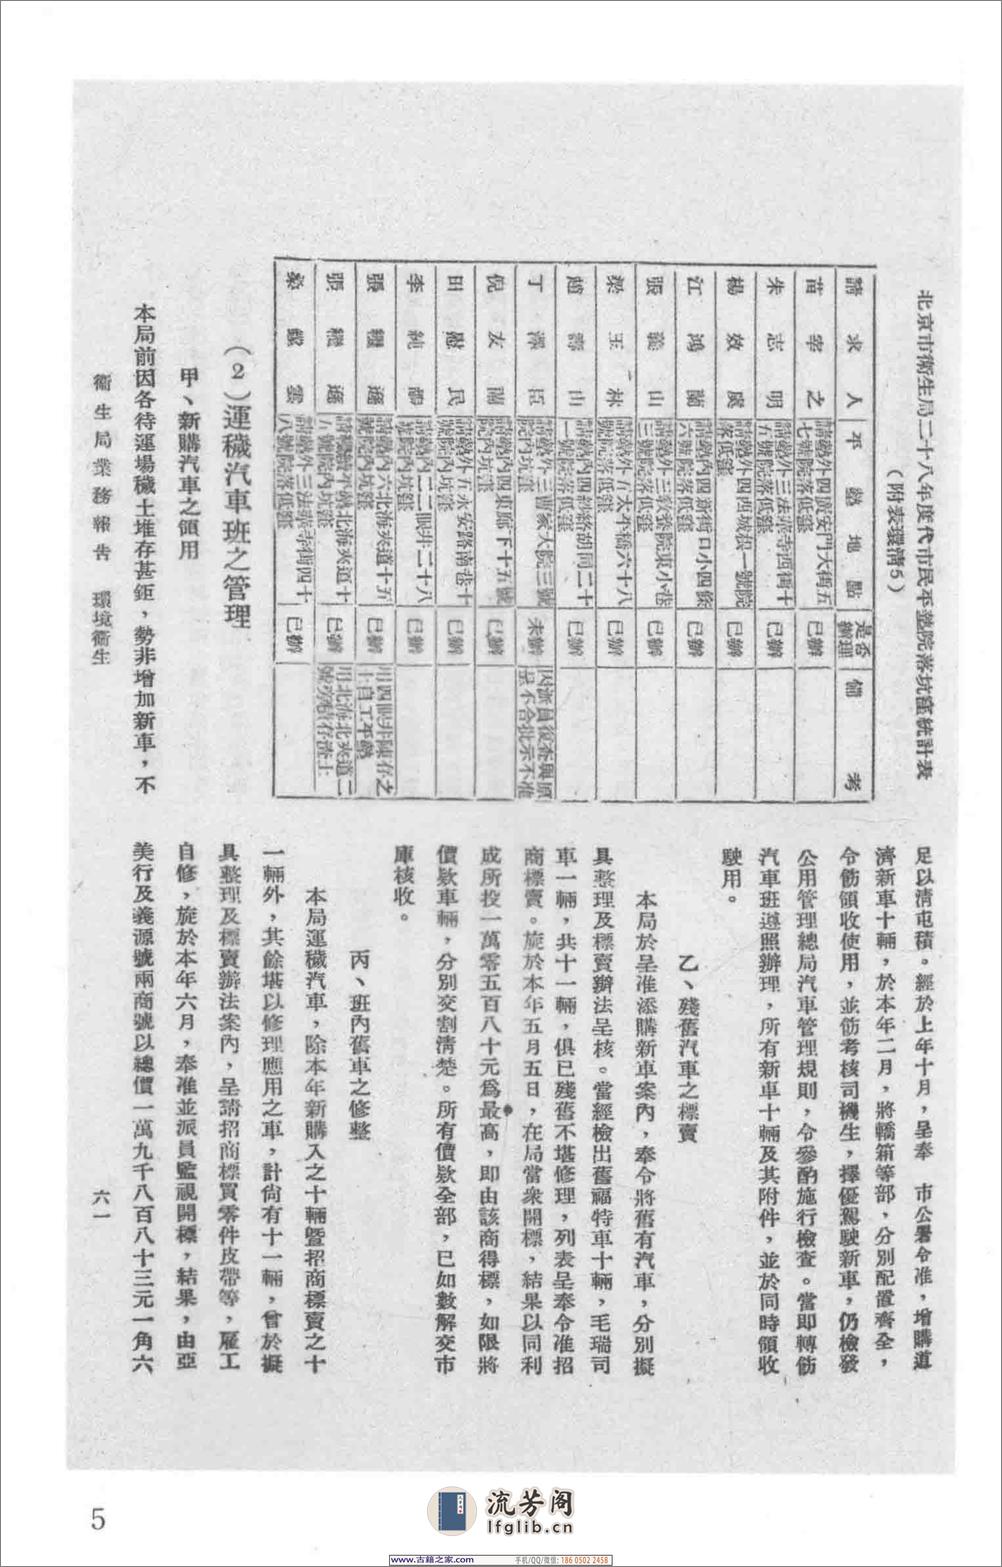 北京市衞生局二十八年度代市民平墊院落坑窪統計表
（附表環清5）
請求人 平墊地點 是否辦理 備考
苗宰之 請墊外四廣安門大街五七號院落低窪 已辦
朱志明 請墊外三法華寺西街十五號院落低窪 已辦
楊效虞 請墊外四西城根一號院落低窪 已辦
江鴻蘭 請墊內四新街口小四條六號院落低窪 已辦
張龍山 三號院落低窪 已辦
梁玉林 請墊外五大外橋六十八號院落低窪 已辦
趙壽山 請墊內四紗絡胡同二十一號院落低窪 已辦
丁澤臣 請墊外三曹家大院三號院落低窪 未辦 因派員復查與原呈不合批示不准
倪友蘭 請墊內四東廊下十五號院內坑窪 已辦
田愚民 請墊外五永安路南巷十號院內坑窪 已辦
李純 請墊內二二眼井二十八號院內坑窪 已辦
張繼 請墊內六北海夾道十五號院內坑窪 已辦 用四眼井陳存之土自工平墊
張繼 北海夾道十五號院內坑窪 已辦 用北海北夾道二號旁堆存渣土
秦 雲 請墊外三法華寺街四十八號院落低窪 已辦
（2）運穢汽車班之管理
甲、新購汽車之領用
本局前因各待運場穢土堆存甚鉅，勢非增加新車，不
足以清屯積。經於上年十月，呈奉　市公署令准，增購道
濟新車十輛，於本年二月，將轎箱等部，分別配置齊全，
令飭領收使用，並飭考核司機生，擇優駕駛新車，仍檢發
公用管理總局汽車管理規則，令參酌施行檢查。當即轉飭
汽車班遵照辦理，所有新車十輛及其附件，並於同時領收
駛用。
乙、殘舊汽車之標賣
本局於呈准添購新車案內，奉令將舊有汽車，分別擬
具整理及標賣辦法呈核。當經檢出舊福特車十輛，毛瑞司
車一輛，共十一輛，俱已殘舊不堪修理，列表呈奉令准招
商標賣。旋於本年五月五日，在局當衆開標，結果以同利
成所投一萬零五百八十元爲最高，即由該商得標，如限將
價欵車輛，分別交割清楚。所有價欵全部，已如數解交市
庫核收。
丙、班內舊車之修整
本局運穢汽車，除本年新購入之十輛暨招商標賣之十
一輛外，其餘堪以修理應用之車，計尙有十一輛，曾於擬
具整理及標賣辦法案內，呈請招商標買零件皮帶等，雇工
自修，旋於本年六月，奉准並派員監視開標，結果，由亞
美行及義源號兩商號以總價一萬九千八百八十三元一角六
衞生局業務報告　環境衞生
六一
5
流芳阁
lfglib.cn
www.古籍之家.com
手机/QQ/微信: 186 0502 2458